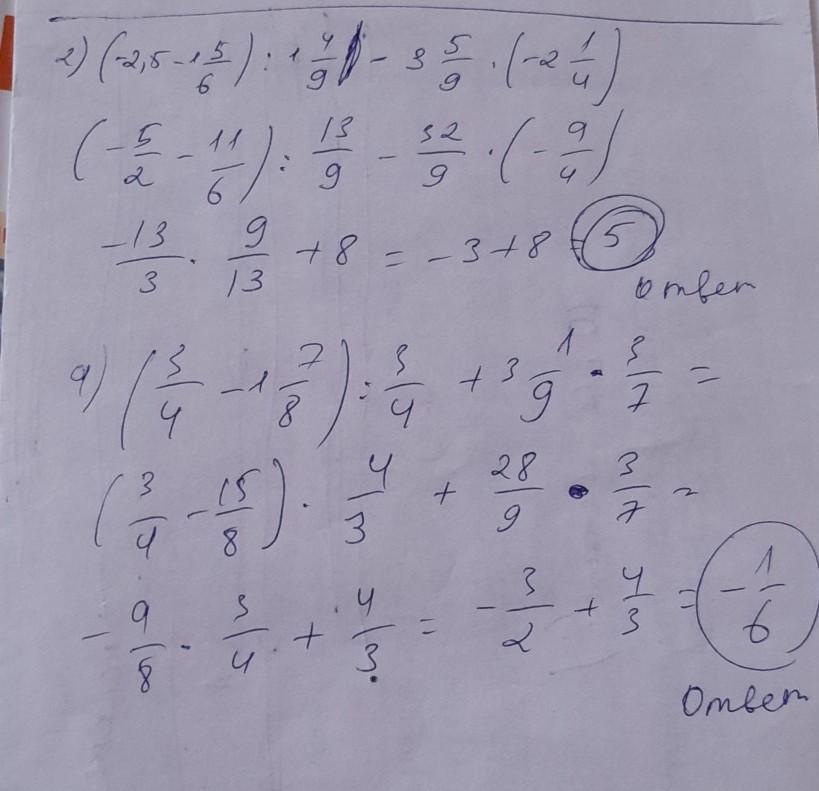 2) (-2,5 - 1 5/6) : 1 4/9 - 3 5/9 · (-2 1/4)
(-5/2 - 11/6) : 13/9 - 32/9 · (-9/4)
-13/3 · 9/13 + 8 = -3 + 8 = 5
ответ
9) (3/4 - 1 7/8) : 3/4 + 3 1/9 · 3/7 =
(3/4 - 15/8) · 4/3 + 28/9 · 3/7 =
- 9/8 · 3/4 + 4/3 = - 3/2 + 4/3 = - 1/6
Ответ